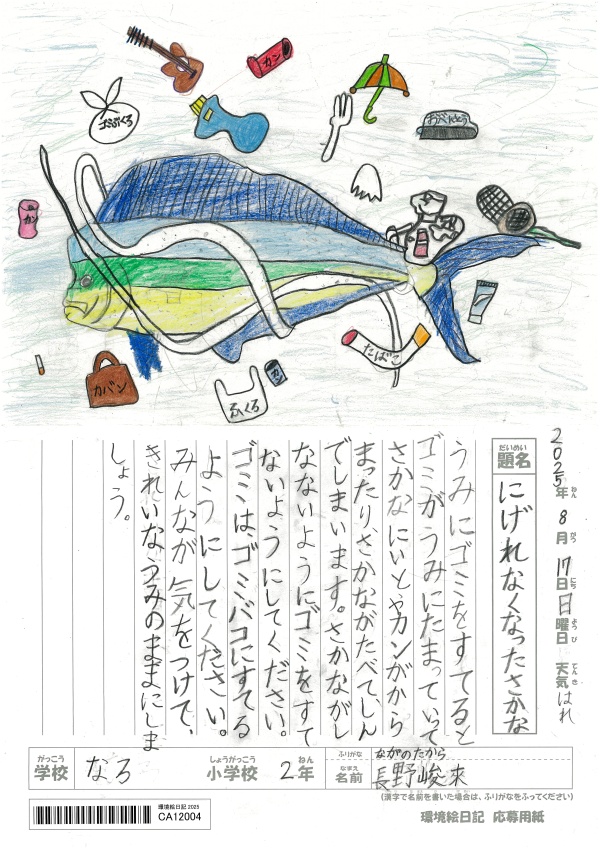 カン
ゴミぶくろ
おべんとう
カン
たばこ
カバン
ふくろ
2025年 8月 17日 日曜日 天気 はれ
ねん がつ にち ようび てんき
だいめい
題名 にげれなくなったさかな
うみにゴミをすてると
ゴミがうみにたまっていって
さかなにいとやカンがから
まったり、さかながたべて、しん
でしまいます。さかながし
なないようにゴミをすて
ないようにしてください。
ゴミは、ゴミバコにすてる
ようにしてください。
みんなが気をつけて、
きれいなうみのままにしま
しょう。
がっこう しょうがっこう ねん ふりがな ながのたから
学校 なろ 小学校 2年 なまえ 名前 長野峻来
(漢字で名前を書いた場合は、ふりがなをふってください)
環境絵日記 2025
CA12004
環境絵日記 応募用紙